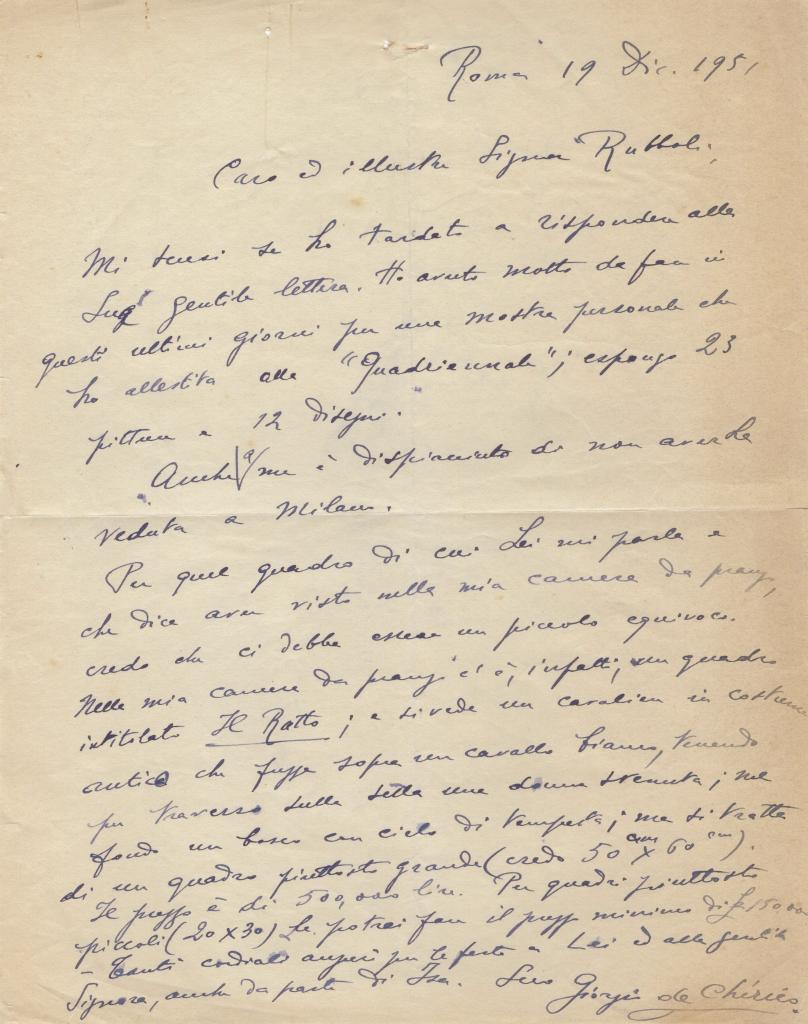 Roma 19 Dic. 1951
Caro ed illustre Signor Rubboli,
Mi scusi se ho tardato a rispondere alla
Sua gentile lettera. Ho avuto molto da fare in
questi ultimi giorni per una mostra personale che
ho allestita alla "Quadriennale"; espongo 23
pitture e 12 disegni.
Anche a me è dispiaciuto di non averLa
veduta a Milano.
Per quel quadro di cui Lei mi parla e
che dice aver visto nella mia camera da pranzo,
credo che ci debba essere un piccolo equivoco.
Nella mia camera da pranzo c'è, infatti, un quadro
intitolato Il Ratto; e si vede un cavaliere in costume
antico che fugge sopra un cavallo bianco, tenendo
per traverso sulla sella una donna svenuta; nel
fondo un bosco con cielo di tempesta; ma si tratta
di un quadro piuttosto grande (credo 50 cm x 60 cm).
Il prezzo è di 500,000 lire. Per quadri piuttosto
piccoli (20 x 30) Le potrei fare il prezzo minimo di £ 150,000
- Tanti cordiali auguri per le feste a Lei ed alla gentile
Signora, anche da parte di Isa. Suo Giorgio de Chirico.